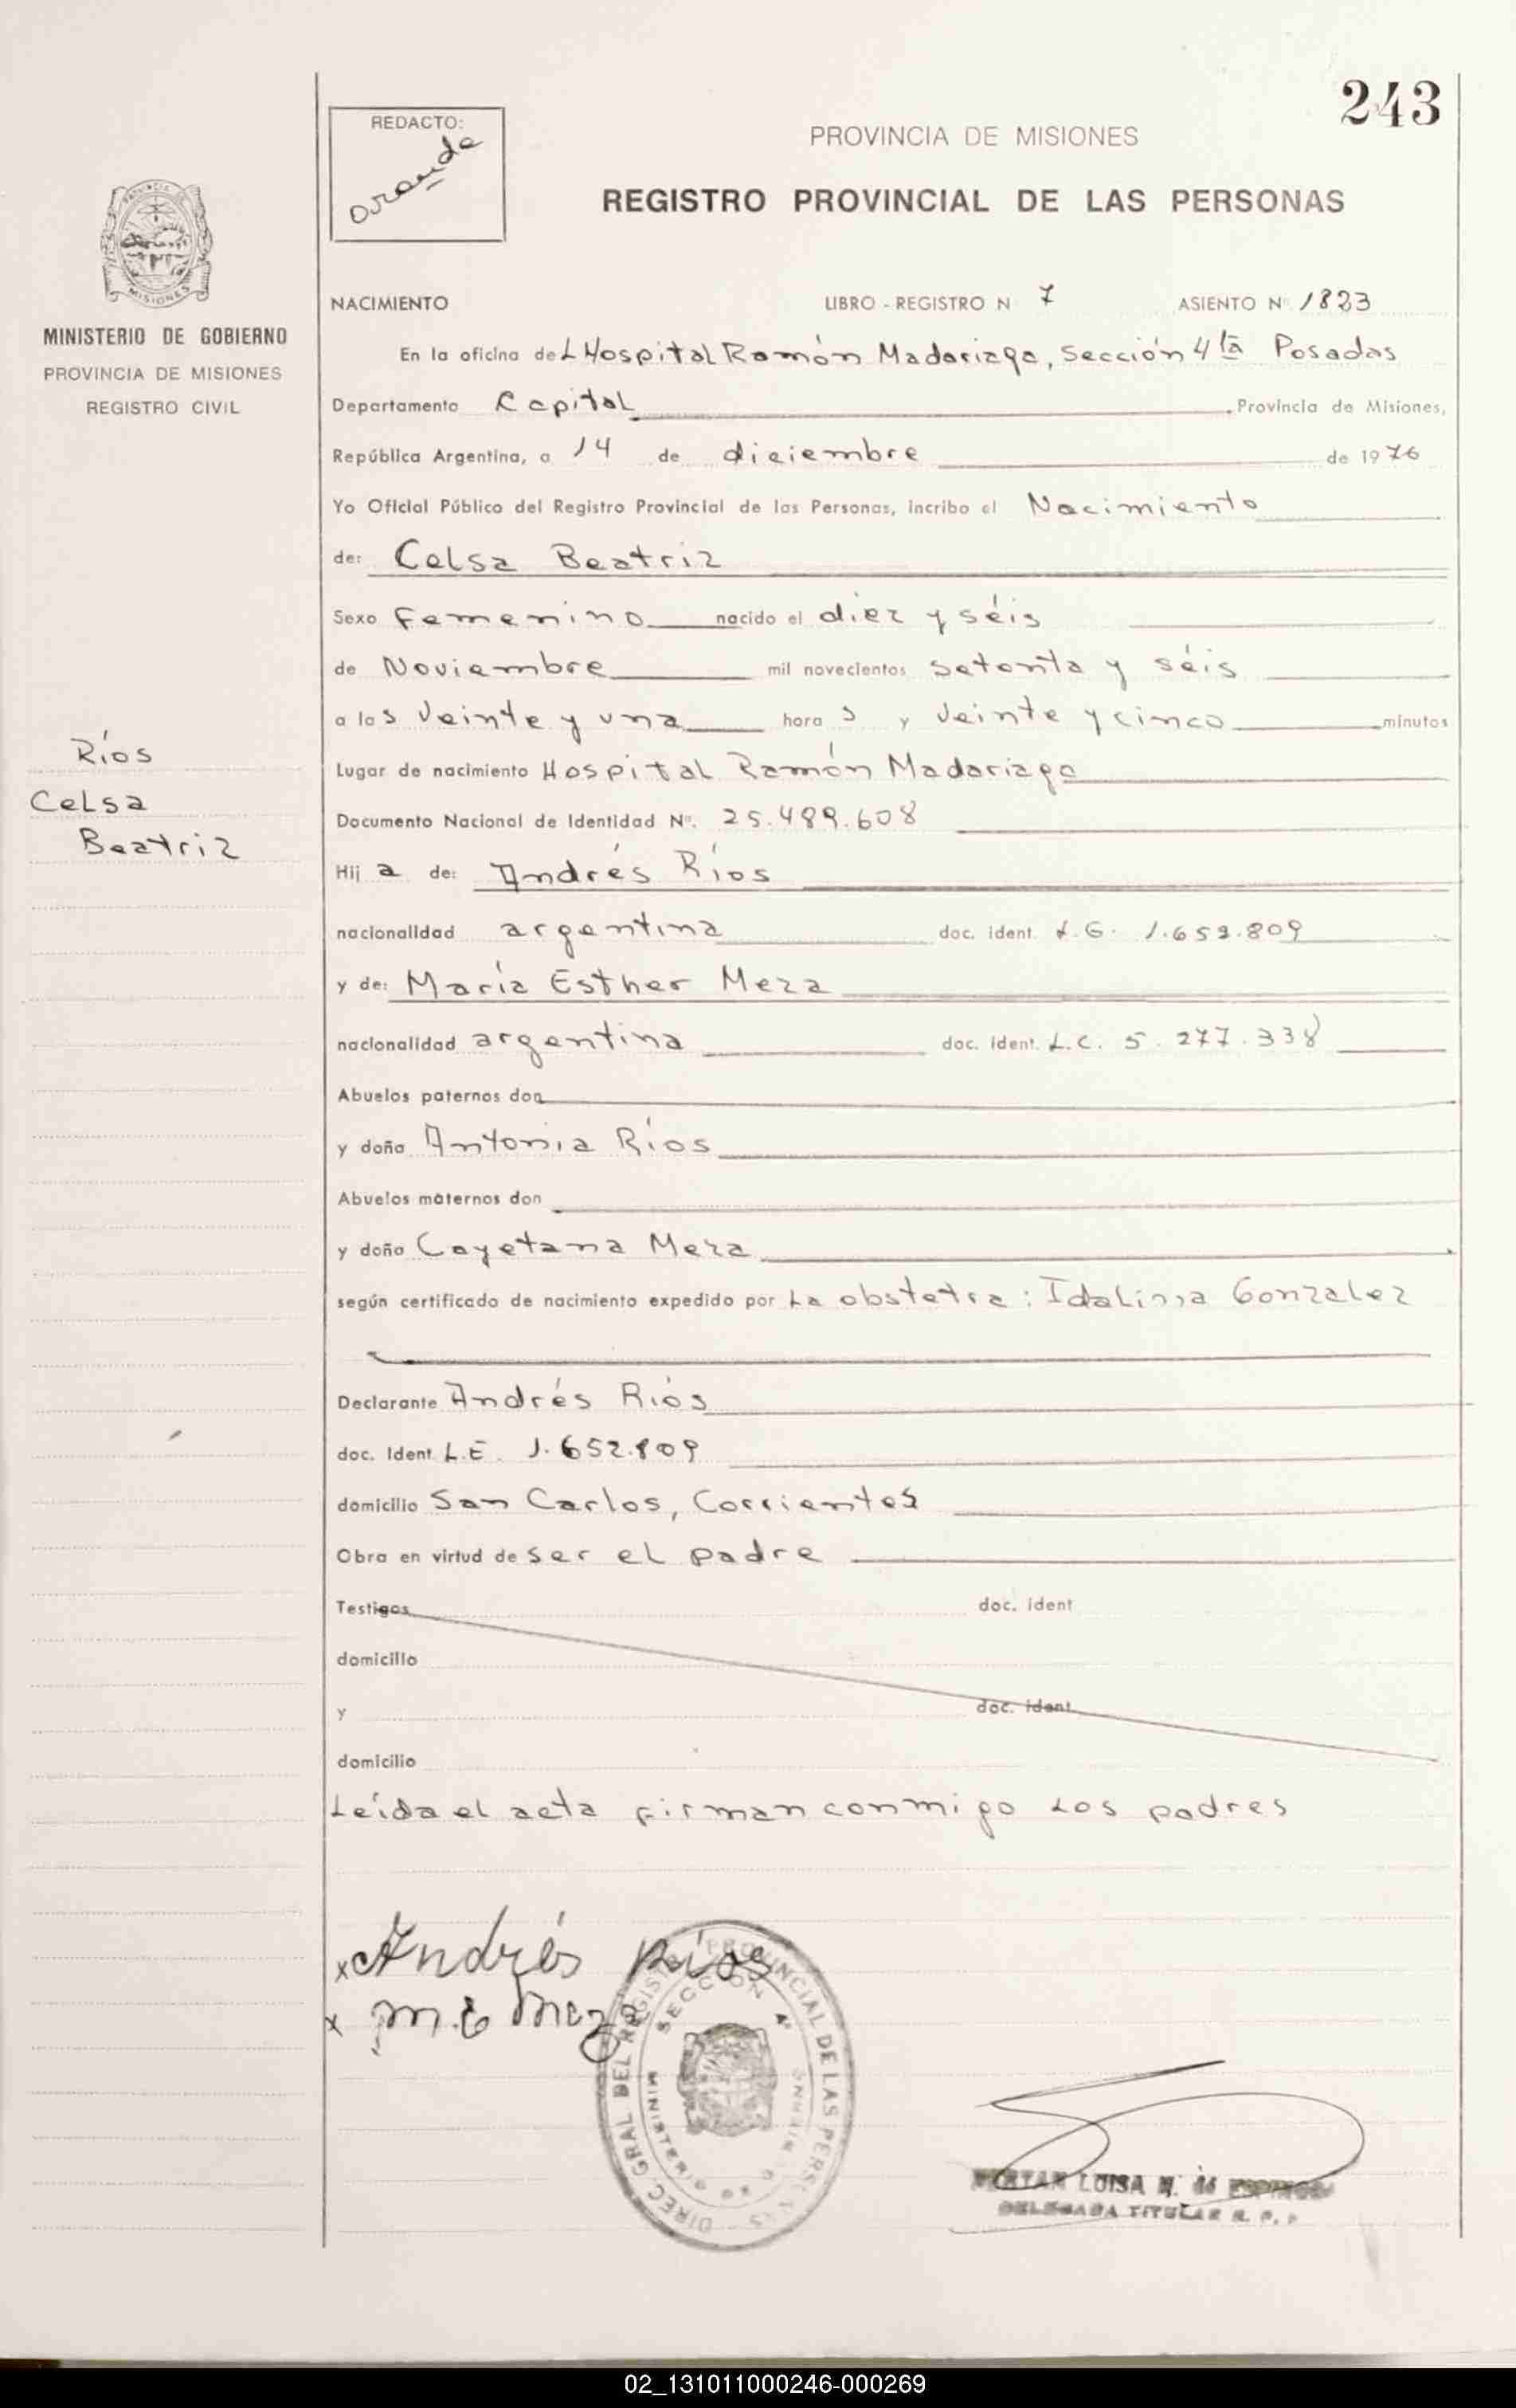 243
REDACTO:
Aranda
PROVINCIA DE MISIONES
REGISTRO PROVINCIAL DE LAS PERSONAS
MISIONES
MINISTERIO DE GOBIERNO
PROVINCIA DE MISIONES
REGISTRO CIVIL
NACIMIENTO LIBRO - REGISTRO N 7 ASIENTO Nº 1823
En la oficina deL Hospital Ramón Madariaga, Sección 4ta Posadas
Departamento Capital Provincia de Misiones,
República Argentina, a 14 de diciembre de 1976
Yo Oficial Público del Registro Provincial de las Personas, incribo el Nacimiento
de: Celsa Beatriz
Sexo Femenino nacido el diez y séis
de Noviembre mil novecientos setenta y séis
a las veinte y una horas y veinte y cinco minutos
Lugar de nacimiento Hospital Ramón Madariaga
Documento Nacional de Identidad Nº. 25.489.608
Ríos
Celsa
Beatriz
Hija de: Andrés Ríos
nacionalidad argentina doc. ident. 809
y de: María Esther Meza
nacionalidad argentina doc. ident. L.C. 5.277.338
Abuelos paternos don
y doña Antonia Ríos
Abuelos maternos don
y doña Cayetana Meza
según certificado de nacimiento expedido por La obstetra: Gonzalez
Declarante Andrés Ríos
doc. Ident L.E. 1.652.809
domicilio San Carlos, Corrientes
Obra en virtud de ser el padre
Testigos doc. ident
domicilio
y doc. ident
domicilio
Leída el acta firman conmigo los padres
x Andrés Ríos
x M.E Meza
DIREC. GRAL DEL REGISTRO PROVINCIAL DE LAS PERSONAS
SECCION 4ª
MINISTERIO DE
LUISA M. de ESPINOSA
DELEGADA TITULAR R. P. P
02_131011000246-000269